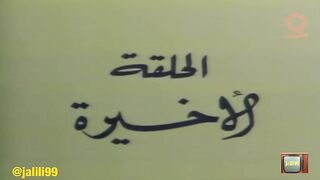 الحلقة
الأخيرة
@jalili99